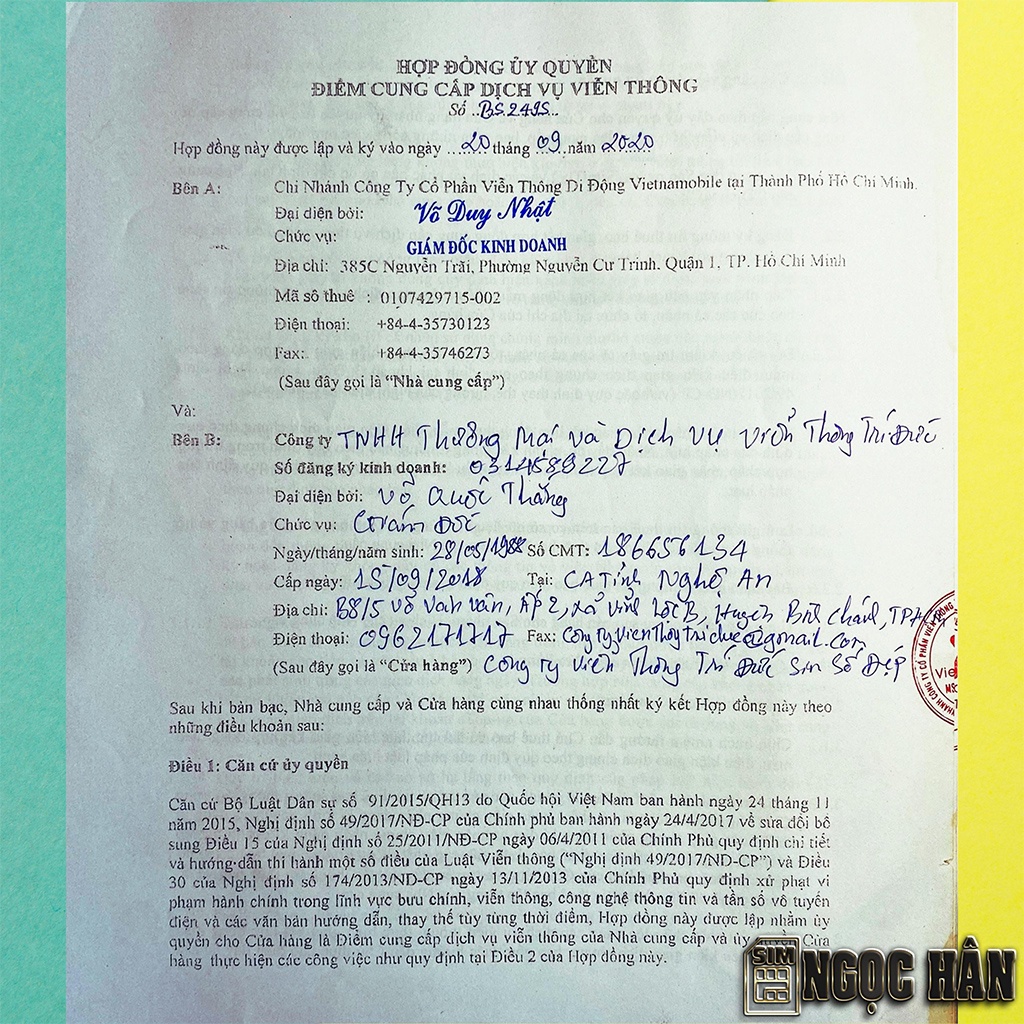 HỢP ĐỒNG ỦY QUYỀN
ĐIỂM CUNG CẤP DỊCH VỤ VIỄN THÔNG
Số ..BS249S...
Hợp đồng này được lập và ký vào ngày ......20 tháng 09 năm 2020
Bên A: Chi Nhánh Công Ty Cổ Phần Viễn Thông Di Động Vietnamobile tại Thành Phố Hồ Chí Minh.
Đại diện bởi: Võ Duy Nhật
Chức vụ: GIÁM ĐỐC KINH DOANH
Địa chỉ: 385C Nguyễn Trãi, Phường Nguyễn Cư Trinh, Quận 1, TP. Hồ Chí Minh
Mã số thuê : 0107429715-002
Điện thoại: +84-4-35730123
Fax: +84-4-35746273
(Sau đây gọi là “Nhà cung cấp”)
Và:
Bên B: Công ty TNHH Thương Mại và Dịch vụ viễn Thông Trí Đức
Số đăng ký kinh doanh: 0314589227
Đại diện bởi: Võ Quốc Thắng
Chức vụ: Giám Đốc
Ngày/tháng/năm sinh: 28/05/1988 Số CMT: 186656134
Cấp ngày: 15/09/2018 Tại: CA Tỉnh Nghệ An
Địa chỉ: B8/5 Võ Văn Vân, ẤP 2, xã Vĩnh Lộc B, Huyện Bình Chánh, TPHCM
Điện thoại: 0962171717 Fax: congtyvienthongtriduc@gmail.com
(Sau đây gọi là “Cửa hàng”) Công ty Viễn Thông Trí Đức Sim Số Đẹp
Sau khi bàn bạc, Nhà cung cấp và Cửa hàng cùng nhau thống nhất ký kết Hợp đồng này theo
những điều khoản sau:
Điều 1: Căn cứ ủy quyền
Căn cứ Bộ Luật Dân sự số 91/2015/QH13 do Quốc hội Việt Nam ban hành ngày 24 tháng 11
năm 2015, Nghị định số 49/2017/NĐ-CP của Chính phủ ban hành ngày 24/4/2017 về sửa đổi bổ
sung Điều 15 của Nghị định số 25/2011/NĐ-CP ngày 06/4/2011 của Chính Phủ quy định chi tiết
và hướng dẫn thi hành một số điều của Luật Viễn thông (“Nghị định 49/2017/NĐ-CP”) và Điều
30 của Nghị định số 174/2013/NĐ-CP ngày 13/11/2013 của Chính Phủ quy định xử phạt vi
phạm hành chính trong lĩnh vực bưu chính, viễn thông, công nghệ thông tin và tần số vô tuyến
điện và các văn bản hướng dẫn, thay thế tùy từng thời điểm, Hợp đồng này được lập nhằm ủy
quyền cho Cửa hàng là Điểm cung cấp dịch vụ viễn thông của Nhà cung cấp và ủy quyền Cửa
hàng thực hiện các công việc như quy định tại Điều 2 của Hợp đồng này.
SIM NGỌC HÂN